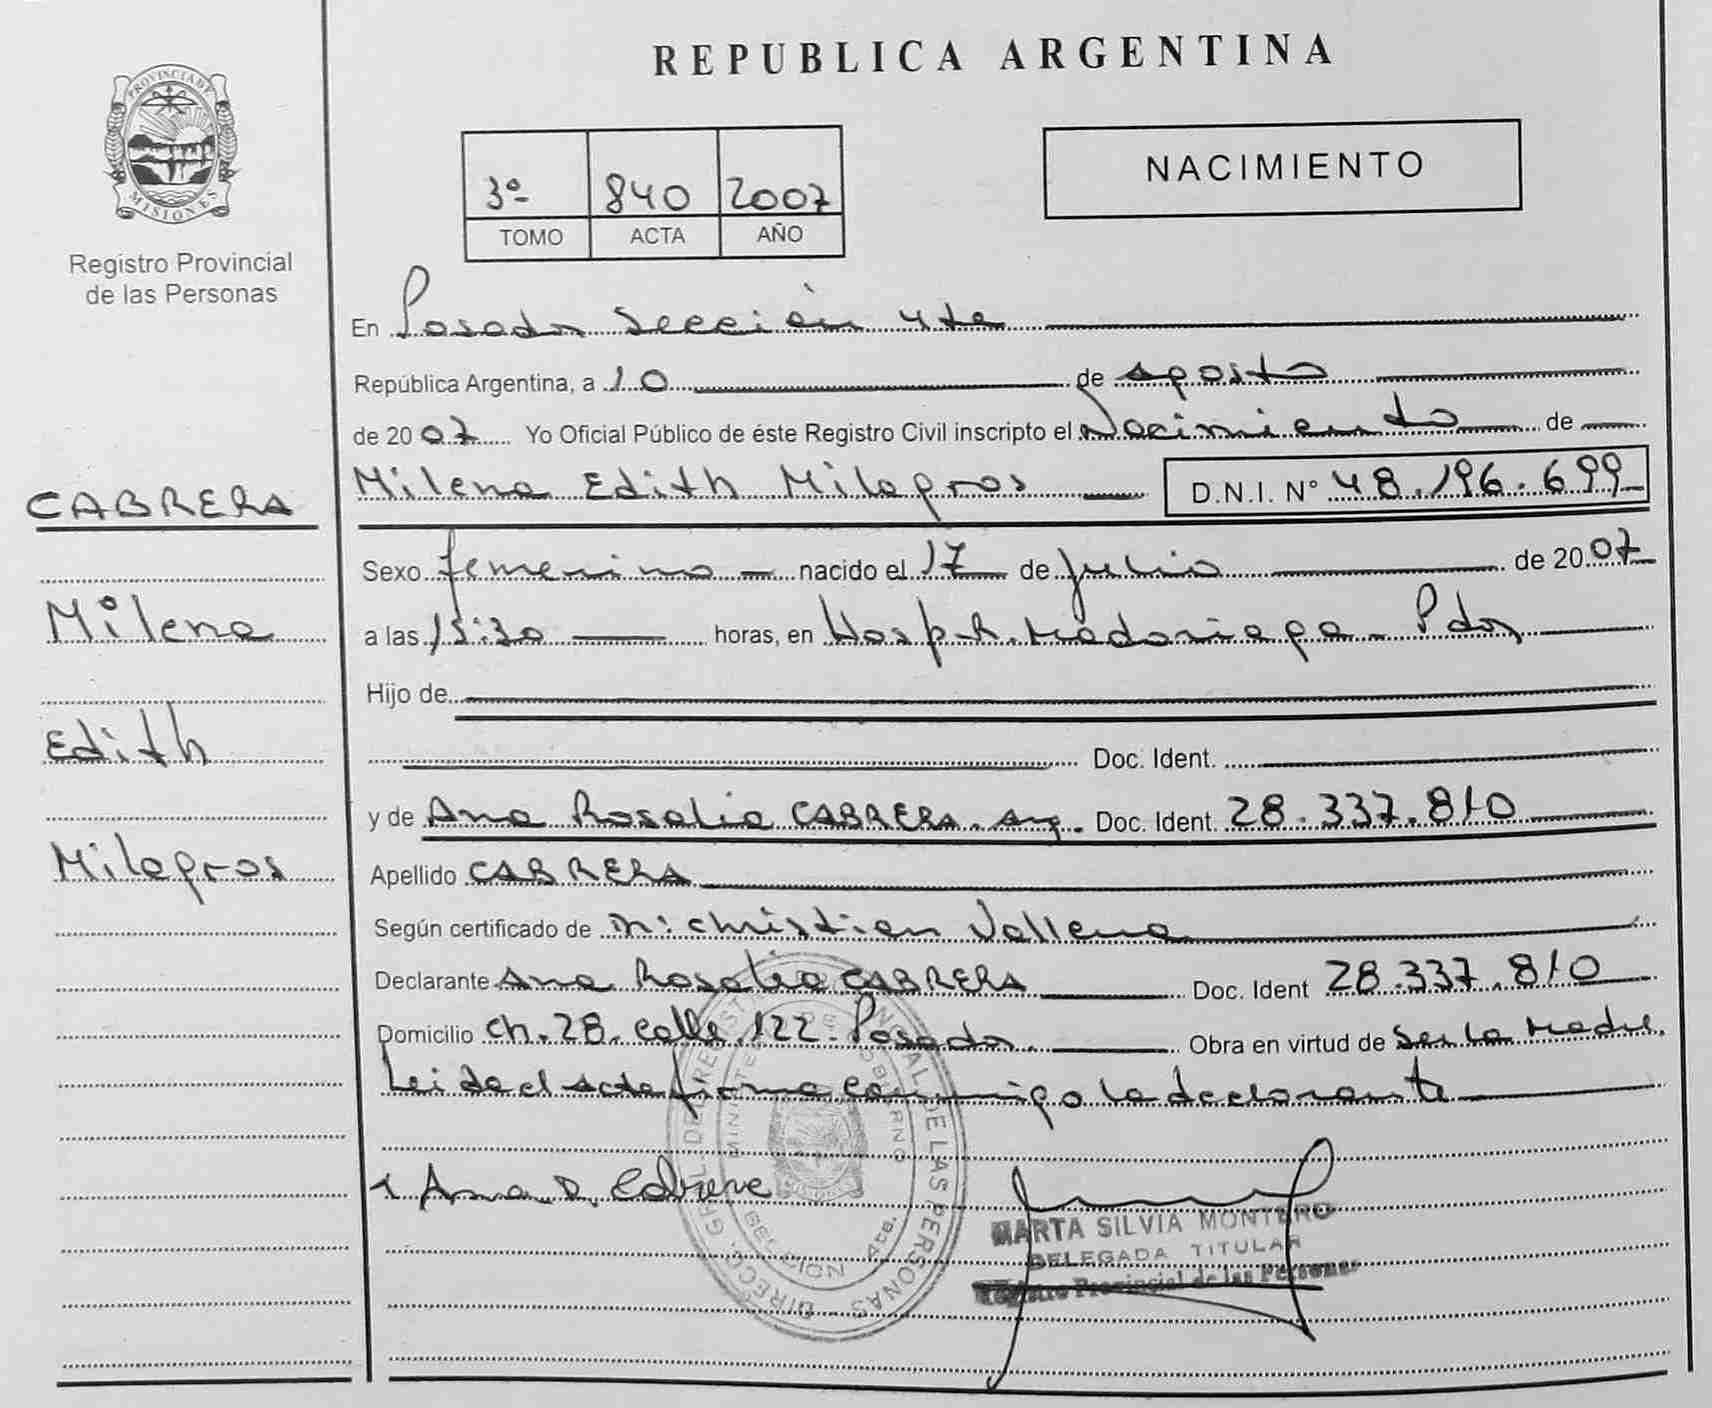 REPUBLICA ARGENTINA
PROVINCIA DE MISIONES
Registro Provincial
de las Personas
3º 840 2007
TOMO ACTA AÑO
NACIMIENTO
En Posadas Sección 4ta
República Argentina, a 10 de agosto
de 2007 Yo Oficial Público de éste Registro Civil inscripto el Nacimiento de
Milena Edith Milagros D.N.I. Nº 48.196.699
CABRERA
Milena
Edith
Milagros
Sexo femenino nacido el 17 de julio de 2007
a las 15:30 horas, en Hosp. R. Madariaga - Pdas
Hijo de
Doc. Ident.
y de Ana Rosalia CABRERA. Arg. Doc. Ident. 28.337.810
Apellido CABRERA
Según certificado de Christian Vallena
Declarante Ana Rosalia CABRERA Doc. Ident 28.337.810
Domicilio Ch. 28. calle 122. Posadas. Obra en virtud de ser la madre.
Leida el acta firma conmigo la declarante
Ana R. Cabrera
MARTA SILVIA MONTERO
DELEGADA TITULAR
Registro Provincial de las Personas